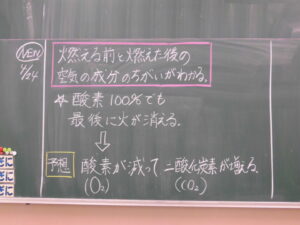 NEW
4/24
燃える前と燃えた後の
空気の成分のちがいがわかる。
☆ 酸素 100%でも
最後に火が消える。
⇩
予想 酸素が減って 二酸化炭素が増える。
(O₂) (CO₂)